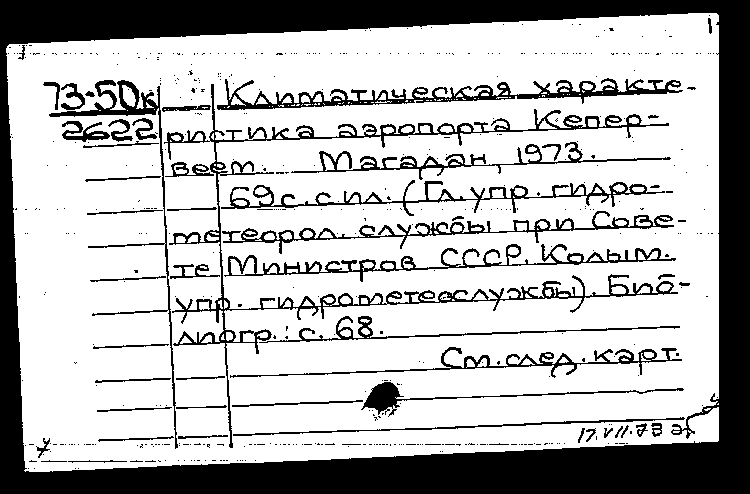 73-50к Климатическая характе-
2622 ристика аэропорта Кепер-
веем. Магадан, 1973.
69 с. с ил. (Гл. упр. гидро-
метеорол. службы при Сове-
те Министров СССР. Колым.
упр. гидрометеослужбы). Биб-
лиогр.: с. 68.
См. след. карт.
17.VII.73